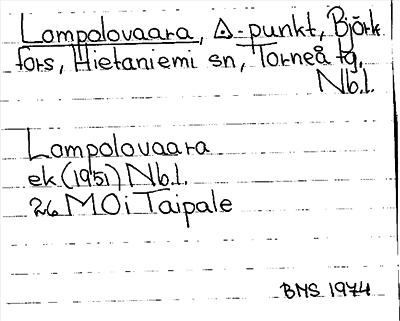 Lompolovaara, Δ-punkt, Björk
fors, Hietaniemi sn, Torneå tg,
Nb.l.
Lompolovaara
ek (1951) Nb.l.
26 MOi Taipale
BNS 1974